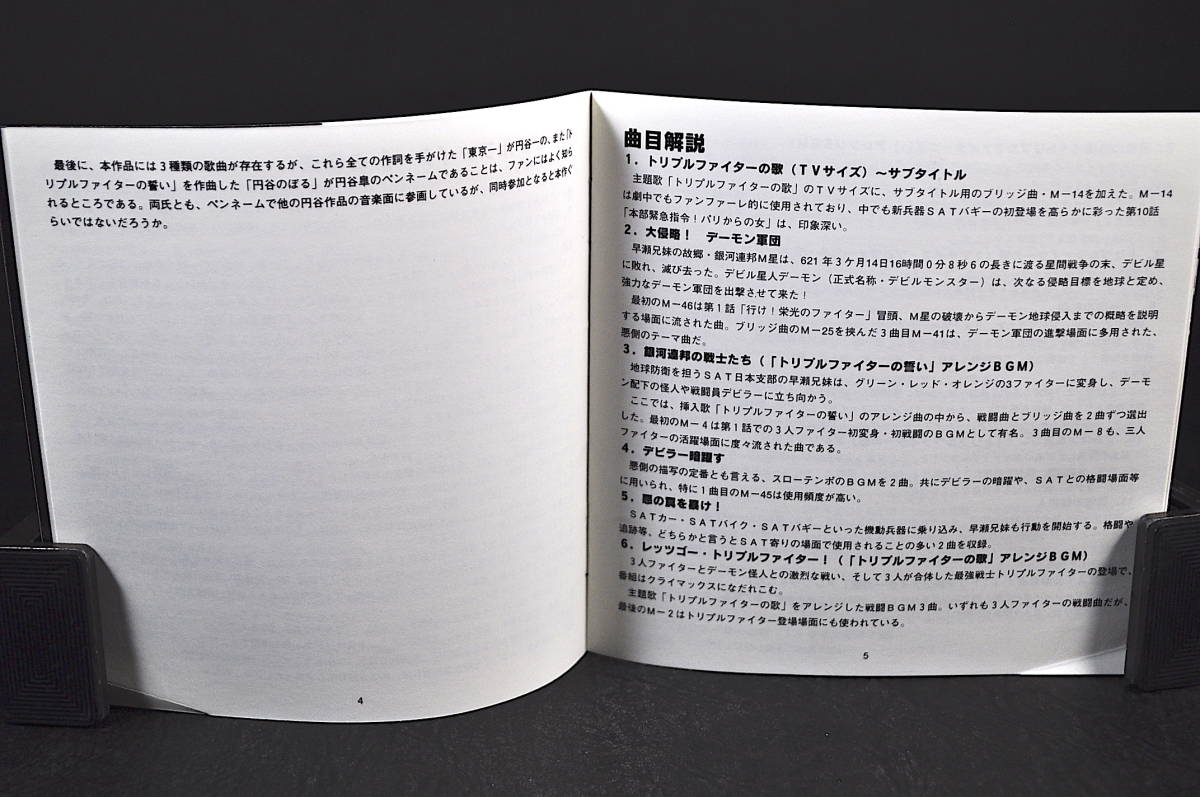 最後に、本作品には3種類の歌曲が存在するが、これら全ての作詞を手がけた「東京一」が円谷一の、また「ト
リプルファイターの誓い」を作曲した「円谷のぼる」が円谷皐のペンネームであることは、ファンにはよく知ら
れるところである。両氏とも、ペンネームで他の円谷作品の音楽面に参画しているが、同時参加となると本作ぐ
らいではないだろうか。
4
曲目解説
1．トリプルファイターの歌（TVサイズ）～サブタイトル
主題歌「トリプルファイターの歌」のTVサイズに、サブタイトル用のブリッジ曲・M－14を加えた。M－14
は劇中でもファンファーレ的に使用されており、中でも新兵器SATバギーの初登場を高らかに彩った第10話
「本部緊急指令！パリからの女」は、印象深い。
2．大侵略！　デーモン軍団
早瀬兄妹の故郷・銀河連邦M星は、621年3ケ月14日16時間0分8秒6の長きに渡る星間戦争の末、デビル星
に敗れ、滅び去った。デビル星人デーモン（正式名称・デビルモンスター）は、次なる侵略目標を地球と定め、
強力なデーモン軍団を出撃させて来た！
最初のM－46は第1話「行け！栄光のファイター」冒頭、M星の破壊からデーモン地球侵入までの概略を説明
する場面に流された曲。ブリッジ曲のM－25を挟んだ3曲目M－41は、デーモン軍団の進撃場面に多用された、
悪側のテーマ曲だ。
3．銀河連邦の戦士たち（「トリプルファイターの誓い」アレンジBGM）
地球防衛を担うSAT日本支部の早瀬兄妹は、グリーン・レッド・オレンジの3ファイターに変身し、デーモ
ン配下の怪人や戦闘員デビラーに立ち向かう。
ここでは、挿入歌「トリプルファイターの誓い」のアレンジ曲の中から、戦闘曲とブリッジ曲を2曲ずつ選出
した。最初のM－4は第1話での3人ファイター初変身・初戦闘のBGMとして有名。3曲目のM－8も、三人
ファイターの活躍場面に度々流された曲である。
4．デビラー暗躍す
悪側の描写の定番とも言える、スローテンポのBGMを2曲。共にデビラーの暗躍や、SATとの格闘場面等
に用いられ、特に1曲目のM－45は使用頻度が高い。
5．悪の罠を暴け！
SATカー・SATバイク・SATバギーといった機動兵器に乗り込み、早瀬兄妹も行動を開始する。格闘や
追跡等、どちらかと言うとSAT寄りの場面で使用されることの多い2曲を収録。
6．レッツゴー・トリプルファイター！（「トリプルファイターの歌」アレンジBGM）
3人ファイターとデーモン怪人との激烈な戦い、そして3人が合体した最強戦士トリプルファイターの登場で、
番組はクライマックスになだれこむ。
主題歌「トリプルファイターの歌」をアレンジした戦闘BGM3曲。いずれも3人ファイターの戦闘曲だが、
最後のM－2はトリプルファイター登場場面にも使われている。
5